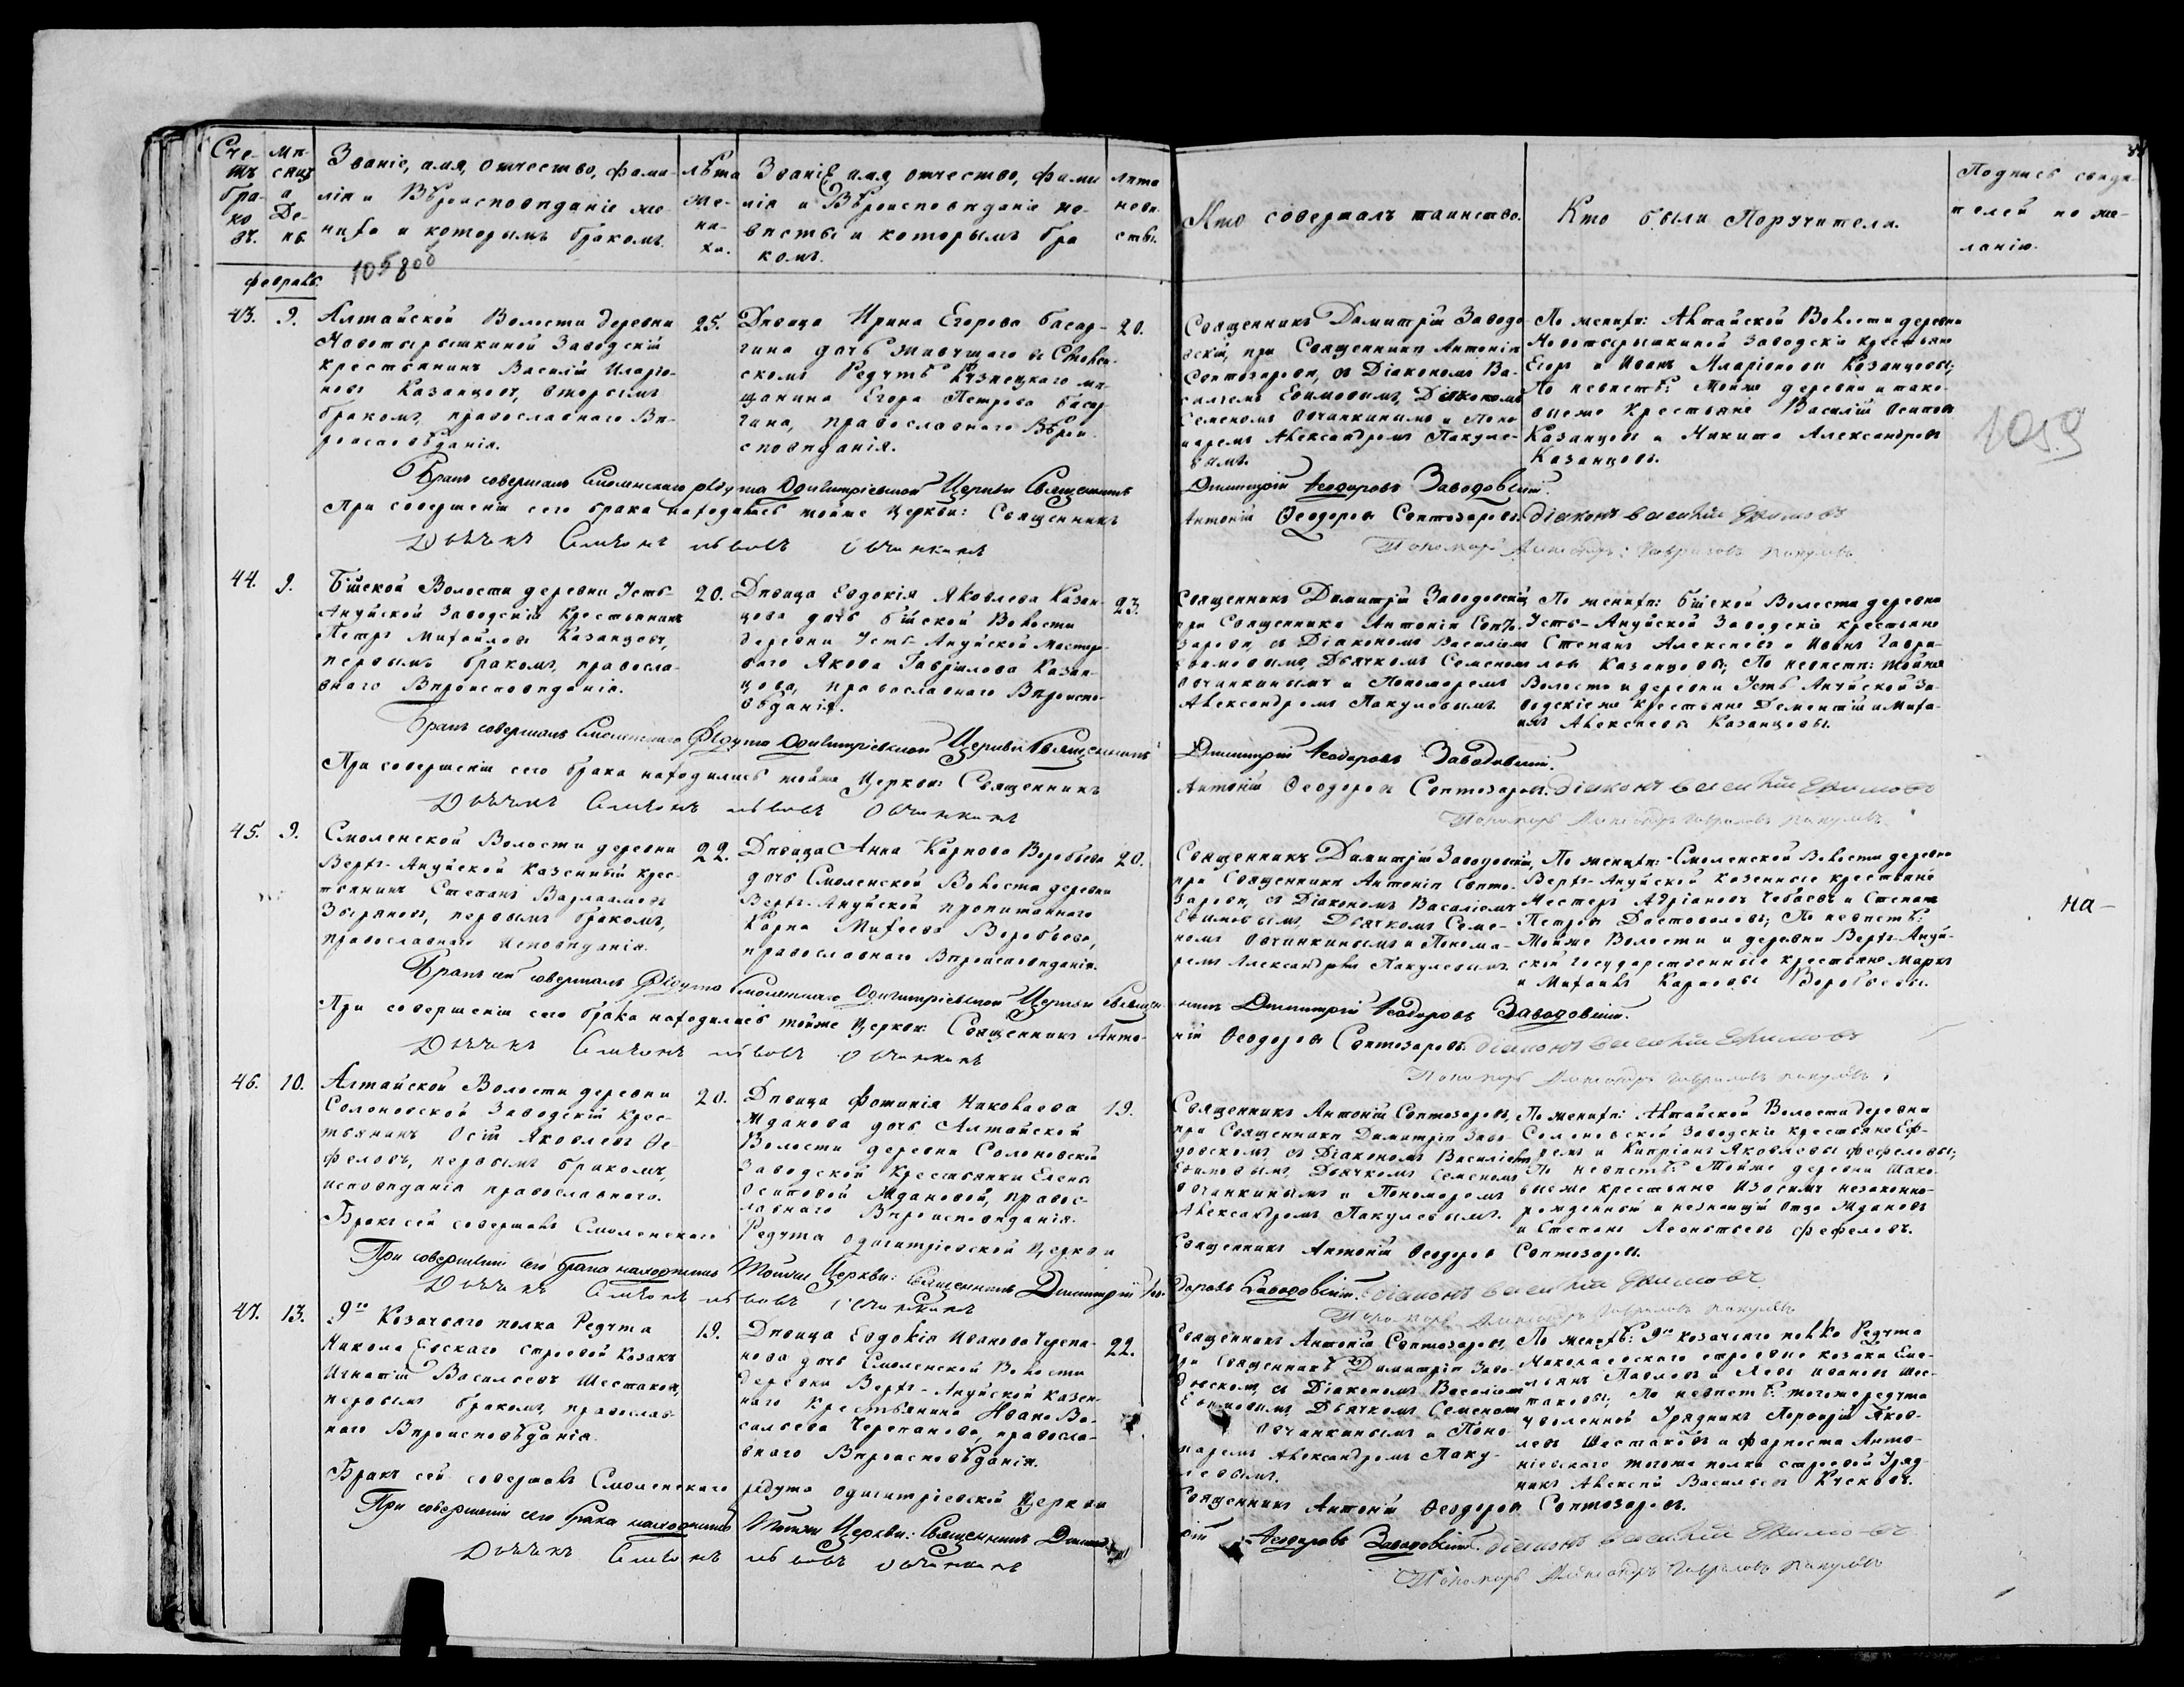 Сче-
тъ
бра-
ко
въ.
Мѣ-
сяц
а
Де-
нь.
Званіе, имя, отчество, фами-
лія и Вѣроисповѣданіе же-
ниха и которымъ бракомъ.
лѣта
же-
ни-
ха.
Званіе имя, отчество, фами
лія и Вѣроисповѣданіе не-
вѣсты и которымъ бра
комъ.
лѣта
невѣ-
сты.
Кто совершалъ таинство.
Кто были Поручители.
Подпись свидѣ-
телей по же-
ланію.
февраль.
43. 9.
Алтайской Волости деревни
Новотырышкиной Заводскій
крестьянинъ Василій Иларіо-
новъ Казанцовъ, вторымъ
бракомъ, православнаго Вѣ-
роисповѣданія.
25.
Дѣвица Ирина Егорова Басар-
гина дочь живущаго въ Смолен-
скомъ Редутѣ Кузнецкаго мѣ-
щанина Егора Петрова Басар
гина, православнаго Вѣрои-
сповѣданія.
20.
Священникъ Димитрій Заводо
вскій, при Священникѣ Антоніѣ
съ Діакономъ Ва-
силіемъ Ефимовымъ, Дьячкомъ
Семеномъ Овчинкинымъ и Поно
маремъ Александромъ Пакуле-
вымъ.
По женихѣ: Алтайской Волости деревни
Новотырышкиной Заводскіе крестьяне
Егоръ и Иванъ Иларіоновы Казанцовы;
По невѣстѣ: Тойже деревни и тако-
выеже Крестьяне Василій Осиповъ
Казанцовъ и Никита Александровъ
Казанцовъ.
1059
Бракъ совершалъ Смоленскаго редута Одигитріевской Церкви Священникъ
Димитрій Ѳеодоровъ Заводовскій.
При совершеніи сего брака находились тойже Церкви: Священникъ
Антоній Ѳеодоровъ
Діаконъ Василій Ефимовъ
Дьячекъ Симеонъ Львовъ Овчинкинъ
Пономарь Александръ Гавриловъ Пакулевъ
44. 9.
Бійской Волости деревни Усть-
Ануйской Заводскій Крестьянинъ
Петръ Михайловъ Казанцовъ,
первымъ бракомъ, правосла-
внаго Вѣроисповѣданія.
20.
Дѣвица Евдокія Яковлева Казан-
цова дочь Бійской Волости
деревни Усть-Ануйской мастер-
ваго Якова Гаврилова Казан-
цова, православнаго Вѣроиспо-
вѣданія.
23.
Священникъ Димитрій Заводовскій,
при Священникѣ Антоніѣ
съ Діакономъ Василіемъ
Ефимовымъ, Дьячкомъ Семеномъ
Овчинкинымъ и Пономаремъ
Александромъ Пакулевымъ.
По женихѣ: Бійской Волости деревни
Усть-Ануйской Заводскіе крестьяне
Степанъ Алексѣевъ и Иванъ Гаври-
ловъ Казанцовы; По невѣстѣ: тойже
Волости и деревни Усть-Ануйской За-
водскіеже Крестьяне Дементій и Миха-
илъ Алексѣевы Казанцовы.
Бракъ совершалъ Смоленскаго Редута Одигитріевской Церкви Священникъ
Димитрій Ѳеодоровъ Заводовскій.
При совершеніи сего брака находились тойже Церкви: Священникъ
Антоній Ѳеодоровъ
Діаконъ Василій Ефимовъ
Дьячекъ Симеонъ Львовъ Овчинкинъ
Пономарь Александръ Гавриловъ Пакулевъ
45. 9.
Смоленской Волости деревни
Верхъ-Ануйской Казенный крес-
тьянинъ Степанъ Варлаамовъ
Зверяновъ, первымъ бракомъ,
православнаго исповѣданія.
22.
Дѣвица Анна Карпова Воробьева
дочь Смоленской Волости деревни
Верхъ-Ануйской пропитаннаго
Карпа Михеева Воробьева,
православнаго Вѣроисповѣданія.
20.
Священникъ Димитрій Заводовскій,
при Священникѣ Антоніѣ
съ Діакономъ Василіемъ
Ефимовымъ, Дьячкомъ Семе-
номъ Овчинкинымъ и Понома-
ремъ Александромъ Пакулевымъ.
По женихѣ: Смоленской Волости деревни
Верхъ-Ануйской Казенные крестьяне
Нестеръ Адріановъ Чебаевъ и Степанъ
Петровъ Достоваловъ; По невѣстѣ:
Тойже Волости и деревни Верхъ-Ануй-
ской Государственные крестьяне Маркъ
и Михаилъ Карповы Воробьевы.
на-
Бракъ сей совершалъ Редута Смоленскаго Одигитріевской Церкви Священ-
никъ Димитрій Ѳеодоровъ Заводовскій.
При совершеніи сего брака находились тойже Церкви: Священникъ Анто-
ній Ѳеодоровъ
Діаконъ Василій Ефимовъ
Дьячекъ Симеонъ Львовъ Овчинкинъ
Пономарь Александръ Гавриловъ Пакулевъ
46. 10.
Алтайской Волости деревни
Солоновской Заводскій крес-
тьянинъ Осій Яковлевъ Фе-
феловъ, первымъ бракомъ,
исповѣданія православнаго.
20.
Дѣвица Фотинія Николаева
Жданова дочь Алтайской
Волости деревни Солоновской
Заводской Крестьянки Елены
Осиповой Ждановой, правос-
лавнаго Вѣроисповѣданія.
19.
Священникъ Антоній
при Священникѣ Димитріѣ Заво-
довскомъ, съ Діакономъ Василіемъ
Ефимовымъ, Дьячкомъ Семеномъ
Овчинкинымъ и Пономаремъ
Александромъ Пакулевымъ.
По женихѣ: Алтайской Волости деревни
Солоновской Заводскіе Крестьяне Еф-
ремъ и Кипріанъ Яковлевы Фефеловы;
По невѣстѣ: Тойже деревни тако-
выеже крестьяне Изосимъ незаконно-
рожденный и незнающій отца Ждановъ
и Степанъ Леонтьевъ Фефеловъ.
Бракъ сей совершалъ Смоленскаго Редута Одигитріевской Церкви
Священникъ Антоній Ѳеодоровъ
При совершеніи сего брака находились Тойже Церкви: Священникъ Димитрій Ѳео-
доровъ Заводовскій. Діаконъ Василій Ефимовъ
Дьячекъ Симеонъ Львовъ Овчинкинъ
Пономарь Александръ Гавриловъ Пакулевъ
47. 13.
9го Козачьяго полка Редута
Николаевскаго строевой Козакъ
Игнатій Васильевъ Шестаковъ,
первымъ бракомъ, православ-
наго Вѣроисповѣданія.
19.
Дѣвица Евдокія Иванова Черепа-
нова дочь Смоленской Волости
деревни Верхъ-Ануйской Казен-
наго Крестьянина Ивана Ва-
сильева Черепанова, правосла-
внаго Вѣроисповѣданія.
22.
Священникъ Антоній
при Священникѣ Димитріѣ Заво-
довскомъ, съ Діакономъ Василіемъ
Ефимовымъ, Дьячкомъ Семеномъ
Овчинкинымъ и Поно-
маремъ Александромъ Паку-
левымъ.
По женихѣ: 9го козачьяго полка Редута
Николаевскаго строевые козаки Еме-
льянъ Павловъ и Левъ Ивановъ Шес-
таковы; По невѣстѣ: тогоже редута
уволенной Урядникъ Порфирій Яков-
левъ Шестаковъ и форпоста Анто-
ніевскаго тогоже полка строевой Уряд-
никъ Алексѣй Васильевъ
Бракъ сей совершалъ Смоленскаго редута Одигитріевской Церкви
Священникъ Антоній Ѳеодоровъ
При совершеніи сего брака находились Тойже Церкви: Священникъ Димит-
рій Ѳеодоровъ Заводовскій. Діаконъ Василій Ефимовъ
Дьячекъ Симеонъ Львовъ Овчинкинъ
Пономарь Александръ Гавриловъ Пакулевъ